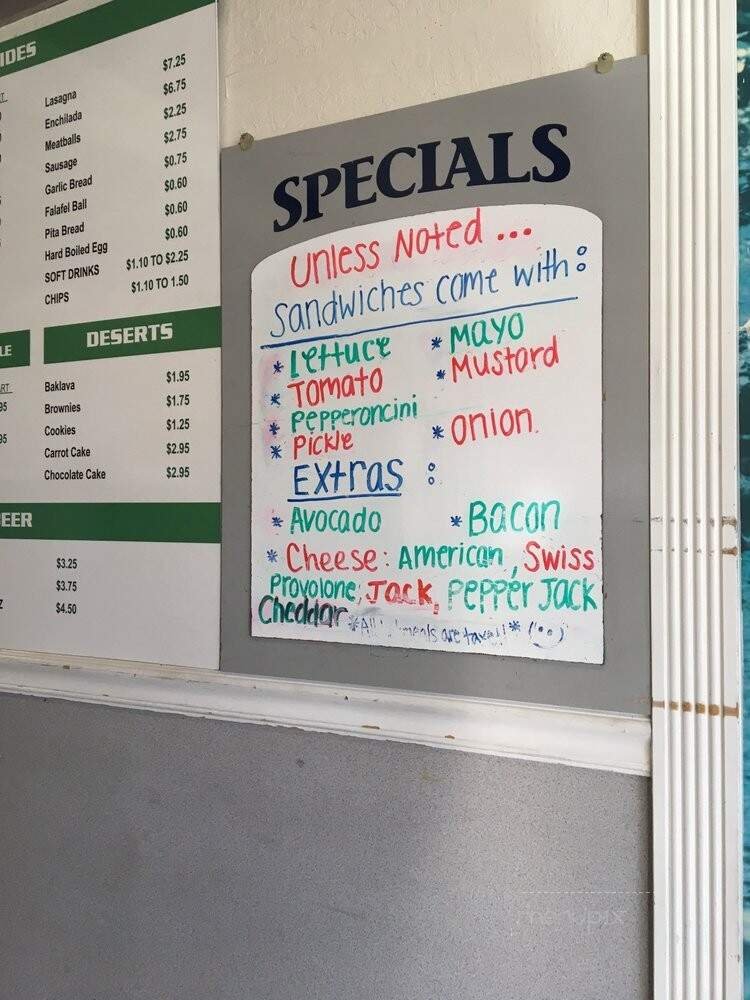 IDES
Lasagna $7.25
Enchilada $6.75
Meatballs $2.25
Sausage $2.75
Garlic Bread $0.75
Falafel Ball $0.60
Pita Bread $0.60
Hard Boiled Egg $0.60
SOFT DRINKS $1.10 TO $2.25
CHIPS $1.10 TO 1.50
LE
DESERTS
Baklava $1.95
Brownies $1.75
Cookies $1.25
Carrot Cake $2.95
Chocolate Cake $2.95
EER
$3.25
$3.75
$4.50
SPECIALS
Unless Noted ...
Sandwiches come with:
* Lettuce * Mayo
* Tomato * Mustard
* Pepperoncini
* Pickle * Onion.
Extras :
* Avocado * Bacon
* Cheese: American, Swiss
Provolone, Jack, Pepper Jack
Cheddar *All are
menupix